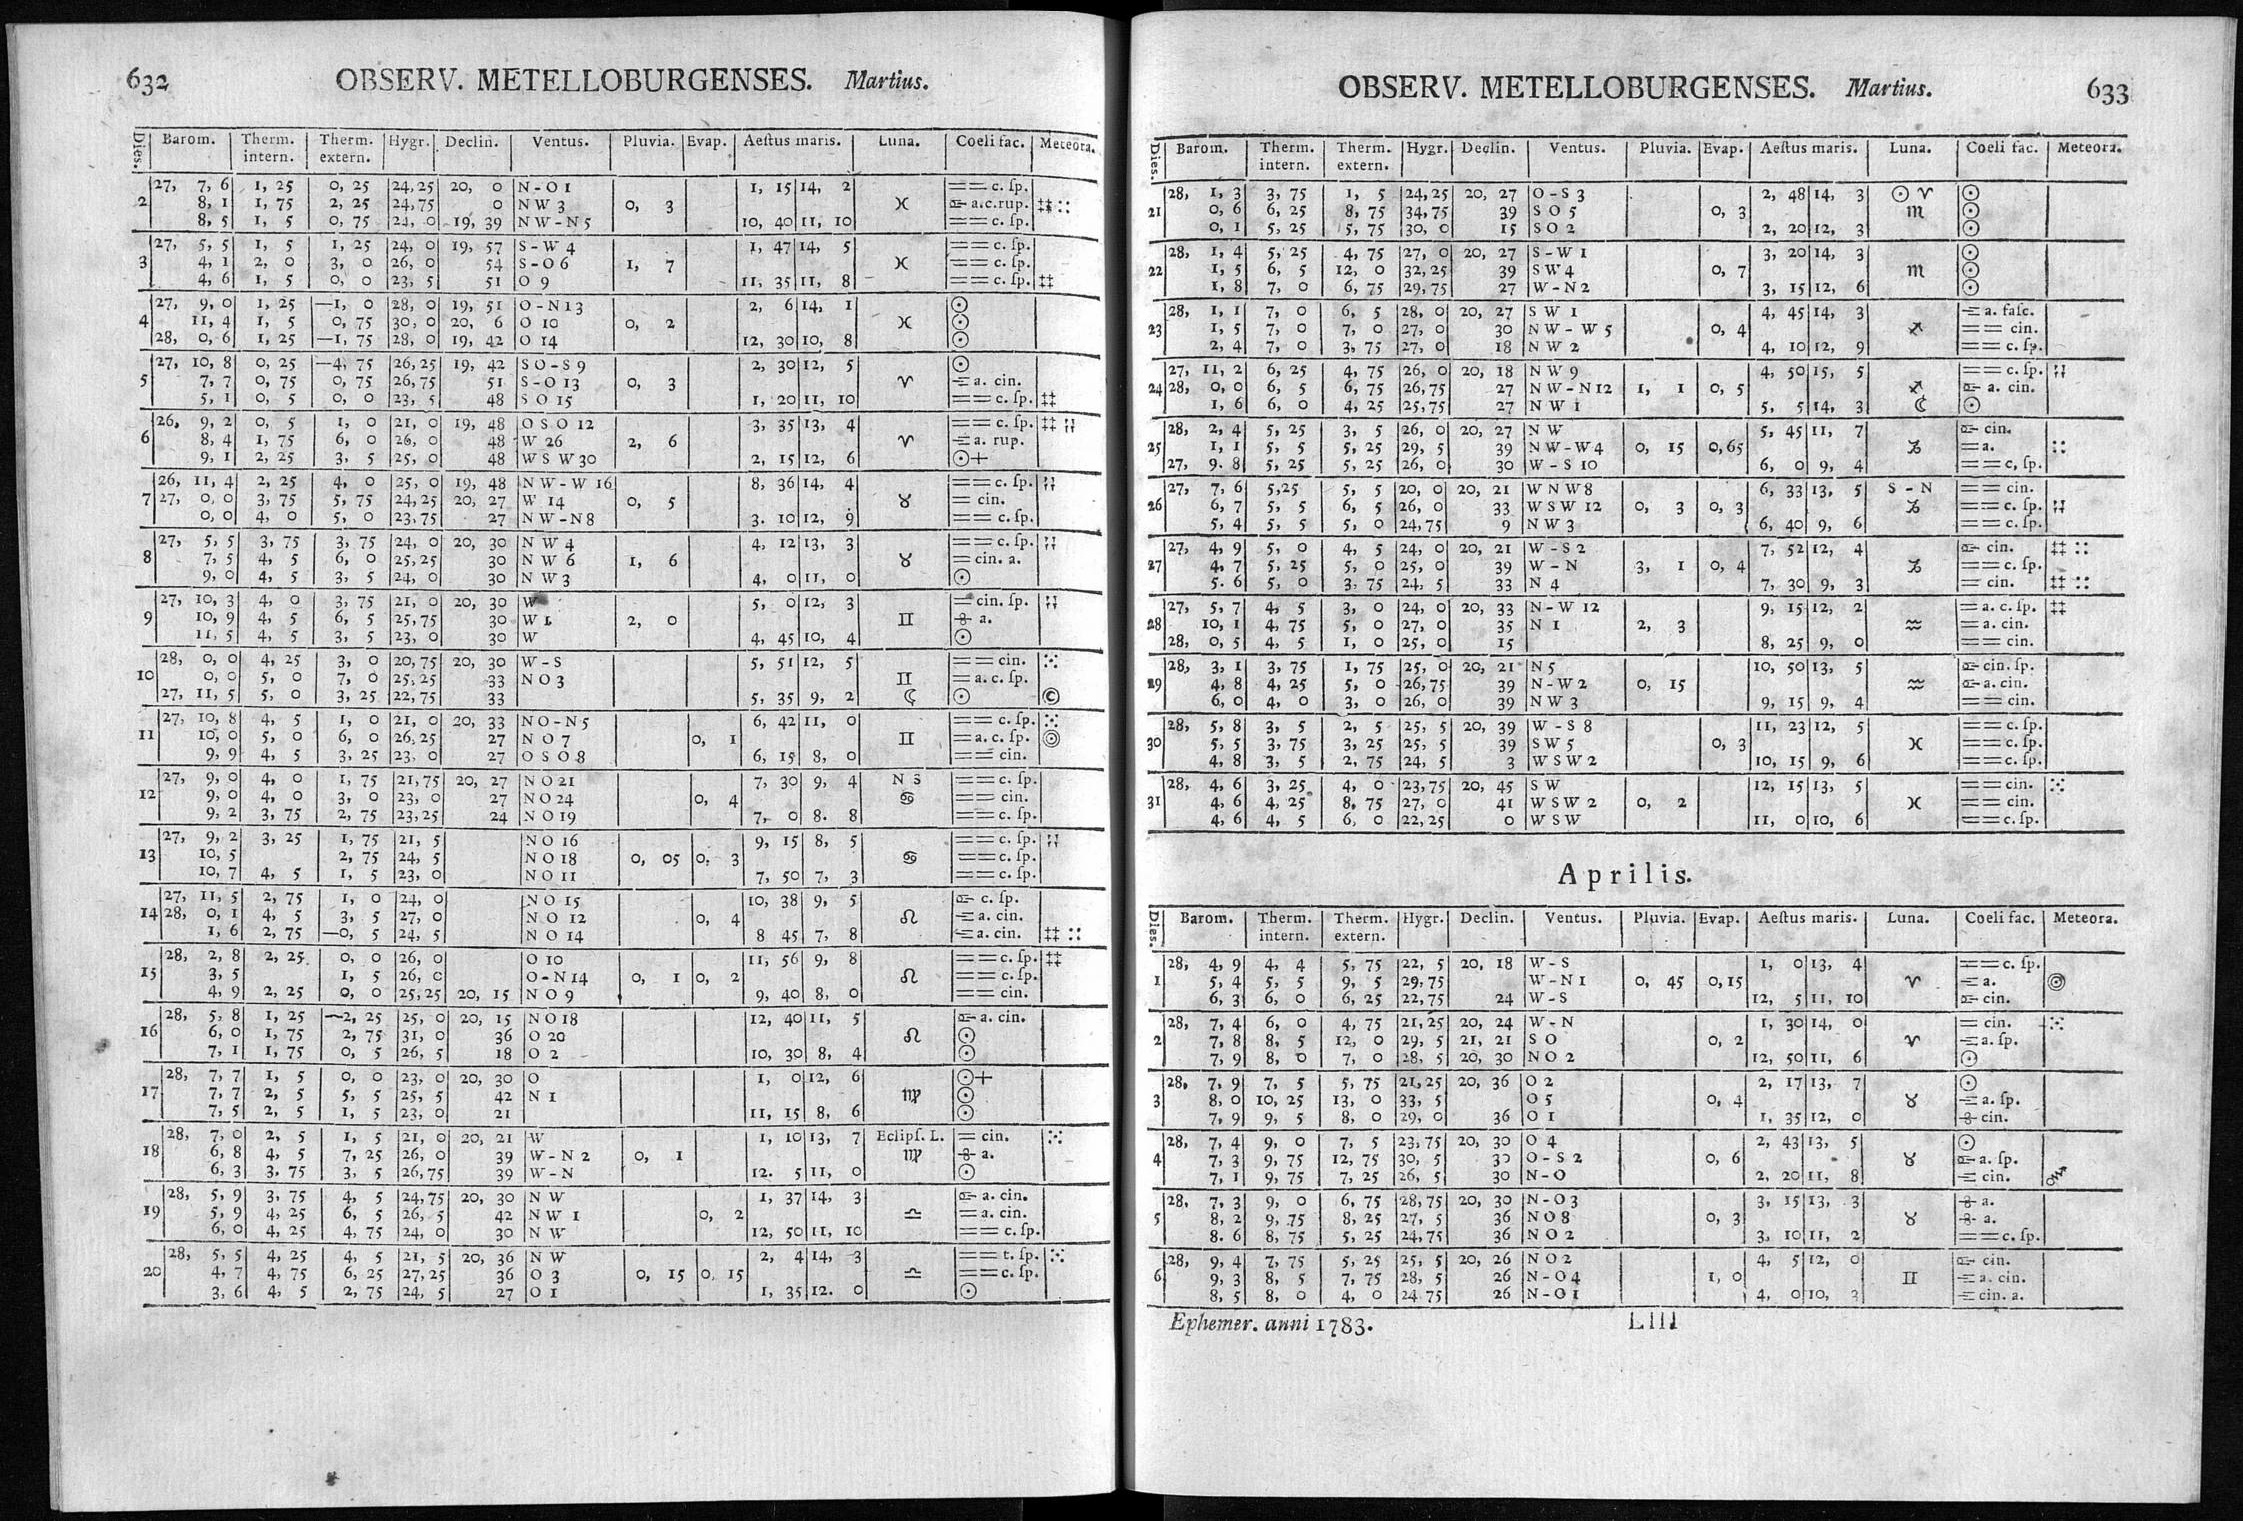 632 OBSERV. METELLOBURGENSES. Martius.
Dies. Barom. Therm. intern. Therm. extern. Hygr. Declin. Ventus. Pluvia. Evap. Aeſtus maris. Luna. Coeli fac. Meteora.
27, 7, 6 1, 25 0, 25 24, 25 20, 0 N-O 1 1, 15 14, 2 == c. ſp.
2 8, 1 1, 75 2, 25 24, 75 0 NW 3 0, 3 ♓ a.c.rup. ‡‡ ::
8, 5 1, 5 0, 75 24, 0 19, 39 NW-N 5 10, 40 11, 10 == c. ſp.
27, 5, 5 1, 5 1, 25 24, 0 19, 57 S-W 4 1, 47 14, 5 == c. ſp.
3 4, 1 2, 0 3, 0 26, 0 54 S-O 6 1, 7 ♓ == c. ſp.
4, 6 1, 5 0, 0 23, 5 51 O 9 11, 35 11, 8 == c. ſp. ‡‡
27, 9, 0 1, 25 —1, 0 28, 0 19, 51 O-N 13 2, 6 14, 1 ☉
4 11, 4 1, 5 0, 75 30, 0 20, 6 O 10 0, 2 ♓ ☉
28, 0, 6 1, 25 —1, 75 28, 0 19, 42 O 14 12, 30 10, 8 ☉
27, 10, 8 0, 25 —4, 75 26, 25 19, 42 SO-S 9 2, 30 12, 5 ☉
5 7, 7 0, 75 0, 75 26, 75 51 S-O 13 0, 3 ♈ a. cin.
5, 1 0, 5 0, 0 23, 5 48 SO 15 1, 20 11, 10 == c. ſp. ‡‡
26, 9, 2 0, 5 1, 0 21, 0 19, 48 OSO 12 3, 35 13, 4 == c. ſp. ‡‡ ¦¦
6 8, 4 1, 75 6, 0 26, 0 48 W 26 2, 6 ♈ a. rup.
9, 1 2, 25 3, 5 25, 0 48 WSW 30 2, 15 12, 6 ☉+
26, 11, 4 2, 25 4, 0 25, 0 19, 48 NW-W 16 8, 36 14, 4 == c. ſp. ¦¦
7 27, 0, 0 3, 75 5, 75 24, 25 20, 27 W 14 0, 5 ♉ = cin.
0, 0 4, 0 5, 0 23, 75 27 NW-N 8 3. 10 12, 9 == c. ſp.
27, 5, 5 3, 75 3, 75 24, 0 20, 30 NW 4 4, 12 13, 3 == c. ſp. ¦¦
8 7, 5 4, 5 6, 0 25, 25 30 NW 6 1, 6 ♉ = cin. a.
9, 0 4, 5 3, 5 24, 0 30 NW 3 4, 0 11, 0 ☉
27, 10, 3 4, 0 3, 75 21, 0 20, 30 W 5, 0 12, 3 = cin. ſp. ¦¦
9 10, 9 4, 5 6, 5 25, 75 30 W 1 2, 0 ♊ a.
11, 5 4, 5 3, 5 23, 0 30 W 4, 45 10, 4 ☉
28, 0, 0 4, 25 3, 0 20, 75 20, 30 W-S 5, 51 12, 5 == cin. ⁙
10 0, 0 5, 0 7, 0 25, 25 33 NO 3 ♊ = a. c. ſp.
27, 11, 5 5, 0 3, 25 22, 75 33 5, 35 9, 2 ☾ ☉ ©
27, 10, 8 4, 5 1, 0 21, 0 20, 33 NO-N 5 6, 42 11, 0 == c. ſp. ⁙
11 10, 0 5, 0 6, 0 26, 25 27 NO 7 0, 1 ♊ = a. c. ſp. ◎
9, 9 4, 5 3, 25 23, 0 27 OSO 8 6, 15 8, 0 == cin.
27, 9, 0 4, 0 1, 75 21, 75 20, 27 NO 21 7, 30 9, 4 N S == c. ſp.
12 9, 0 4, 0 3, 0 23, 0 27 NO 24 0, 4 ♋ == cin.
9, 2 3, 75 2, 75 23, 25 24 NO 19 7, 0 8. 8 == c. ſp.
27, 9, 2 3, 25 1, 75 21, 5 NO 16 9, 15 8, 5 == c. ſp. ¦¦
13 10, 5 2, 75 24, 5 NO 18 0, 05 0, 3 ♋ == c. ſp.
10, 7 4, 5 1, 5 23, 0 NO 11 7, 50 7, 3 == c. ſp.
27, 11, 5 2, 75 1, 0 24, 0 NO 15 10, 38 9, 5 c. ſp.
14 28, 0, 1 4, 5 3, 5 27, 0 NO 12 0, 4 ♌ a. cin.
1, 6 2, 75 —0, 5 24, 5 NO 14 8 45 7, 8 a. cin. ‡‡ ::
28, 2, 8 2, 25 0, 0 26, 0 O 10 11, 56 9, 8 == c. ſp. ‡‡
15 3, 5 1, 5 26, 0 O-N 14 0, 1 0, 2 ♌ == c. ſp.
4, 9 2, 25 0, 0 25, 25 20, 15 NO 9 9, 40 8, 0 == cin.
28, 5, 8 1, 25 —2, 25 25, 0 20, 15 NO 18 12, 40 11, 5 a. cin.
16 6, 0 1, 75 2, 75 31, 0 36 O 20 ♌ ☉
7, 1 1, 75 0, 5 26, 5 18 O 2 10, 30 8, 4 ☉
28, 7, 7 1, 5 0, 0 23, 0 20, 30 O 1, 0 12, 6 ☉+
17 7, 7 2, 5 5, 5 25, 5 42 N 1 ♍ ☉
7, 5 2, 5 1, 5 23, 0 21 11, 15 8, 6 ☉
28, 7, 0 2, 5 1, 5 21, 0 20, 21 W 1, 10 13, 7 Eclipſ. L. = cin. ⁙
18 6, 8 4, 5 7, 25 26, 0 39 W-N 2 0, 1 ♍ a.
6, 3 3, 75 3, 5 26, 75 39 W-N 12. 5 11, 0 ☉
28, 5, 9 3, 75 4, 5 24, 75 20, 30 NW 1, 37 14, 3 a. cin.
19 5, 9 4, 25 6, 5 26, 5 42 NW 1 0, 2 ♎ = a. cin.
6, 0 4, 25 4, 75 24, 0 30 NW 12, 50 11, 10 == c. ſp.
28, 5, 5 4, 25 4, 5 21, 5 20, 36 NW 2, 4 14, 3 == t. ſp. ⁙
20 4, 7 4, 75 6, 25 27, 25 36 O 3 0, 15 0, 15 ♎ == c. ſp.
3, 6 4, 5 2, 75 24, 5 27 O 1 1, 35 12. 0 ☉
OBSERV. METELLOBURGENSES. Martius. 633
Dies. Barom. Therm. intern. Therm. extern. Hygr. Declin. Ventus. Pluvia. Evap. Aeſtus maris. Luna. Coeli fac. Meteora.
28, 1, 3 3, 75 1, 5 24, 25 20, 27 O-S 3 2, 48 14, 3 ☉ ♈ ☉
21 0, 6 6, 25 8, 75 34, 75 39 SO 5 0, 3 ♏ ☉
0, 1 5, 25 5, 75 30, 0 15 SO 2 2, 20 12, 3 ☉
28, 1, 4 5, 25 4, 75 27, 0 20, 27 S-W 1 3, 20 14, 3 ☉
22 1, 5 6, 5 12, 0 32, 25 39 SW 4 0, 7 ♏ ☉
1, 8 7, 0 6, 75 29, 75 27 W-N 2 3, 15 12, 6 ☉
28, 1, 1 7, 0 6, 5 28, 0 20, 27 SW 1 4, 45 14, 3 a. faſc.
23 1, 5 7, 0 7, 0 27, 0 30 NW-W 5 0, 4 ♐ == cin.
2, 4 7, 0 3, 75 27, 0 18 NW 2 4, 10 12, 9 == c. ſp.
27, 11, 2 6, 25 4, 75 26, 0 20, 18 NW 9 4, 50 15, 5 == c. ſp. ¦¦
24 28, 0, 0 6, 5 6, 75 26, 75 27 NW-N 12 1, 1 0, 5 ♐ a. cin.
1, 6 6, 0 4, 25 25, 75 27 NW 1 5, 5 14, 3 ☾ ☉
28, 2, 4 5, 25 3, 5 26, 0 20, 27 NW 5, 45 11, 7 cin.
25 1, 1 5, 5 5, 25 29, 5 39 NW-W 4 0, 15 0, 65 ♑ = a. ::
27, 9. 8 5, 25 5, 25 26, 0 30 W-S 10 6, 0 9, 4 == c, ſp.
27, 7, 6 5, 25 5, 5 20, 0 20, 21 WNW 8 6, 33 13, 5 S - N == cin.
26 6, 7 5, 5 6, 5 26, 0 33 WSW 12 0, 3 0, 3 ♑ == c. ſp. ¦¦
5, 4 5, 5 5, 0 24, 75 9 NW 3 6, 40 9, 6 == c. ſp.
27, 4, 9 5, 0 4, 5 24, 0 20, 21 W-S 2 7, 52 12, 4 cin. ‡‡ ::
27 4, 7 5, 25 5, 0 25, 0 39 W-N 3, 1 0, 4 ♑ == c. ſp.
5. 6 5, 0 3, 75 24, 5 33 N 4 7, 30 9, 3 = cin. ‡‡ ::
27, 5, 7 4, 5 3, 0 24, 0 20, 33 N-W 12 9, 15 12, 2 = a. c. ſp. ‡‡
28 10, 1 4, 75 5, 0 27, 0 35 N 1 2, 3 ♒ = a. cin.
28, 0, 5 4, 5 1, 0 25, 0 15 8, 25 9, 0 == cin.
28, 3, 1 3, 75 1, 75 25, 0 20, 21 N 5 10, 50 13, 5 cin. ſp.
29 4, 8 4, 25 5, 0 26, 75 39 N-W 2 0, 15 ♒ a. cin.
6, 0 4, 0 3, 0 26, 0 39 NW 3 9, 15 9, 4 == cin.
28, 5, 8 3, 5 2, 5 25, 5 20, 39 W-S 8 11, 23 12, 5 == c. ſp.
30 5, 5 3, 75 3, 25 25, 5 39 SW 5 0, 3 ♓ == c. ſp.
4, 8 3, 5 2, 75 24, 5 3 WSW 2 10, 15 9, 6 == c. ſp.
28, 4, 6 3, 25 4, 0 23, 75 20, 45 SW 12, 15 13, 5 == cin. ⁙
31 4, 6 4, 25 8, 75 27, 0 41 WSW 2 0, 2 ♓ == cin.
4, 6 4, 5 6, 0 22, 25 0 WSW 11, 0 10, 6 == c. ſp.
Aprilis.
Dies. Barom. Therm. intern. Therm. extern. Hygr. Declin. Ventus. Pluvia. Evap. Aeſtus maris. Luna. Coeli fac. Meteora.
28, 4, 9 4, 4 5, 75 22, 5 20, 18 W-S 1, 0 13, 4 == c. ſp.
1 5, 4 5, 5 9, 5 29, 75 W-N 1 0, 45 0, 15 ♈ a. ◎
6, 3 6, 0 6, 25 22, 75 24 W-S 12, 5 11, 10 cin.
28, 7, 4 6, 0 4, 75 21, 25 20, 24 W-N 1, 30 14, 0 = cin. ⁙
2 7, 8 8, 5 12, 0 29, 5 21, 21 SO 0, 2 ♈ a. ſp.
7, 9 8, 0 7, 0 28, 5 20, 30 NO 2 12, 50 11, 6 ☉
28, 7, 9 7, 5 5, 75 21, 25 20, 36 O 2 2, 17 13, 7 ☉
3 8, 0 10, 25 13, 0 33, 5 O 5 0, 4 ♉ a. ſp.
7, 9 9, 5 8, 0 29, 0 36 O 1 1, 35 12, 0 cin.
28, 7, 4 9, 0 7, 5 23, 75 20, 30 O 4 2, 43 13, 5 ☉
4 7, 3 9, 75 12, 75 30, 5 30 O-S 2 0, 6 ♉ a. ſp.
7, 1 9, 75 7, 25 26, 5 30 N-O 2, 20 11, 8 cin.
28, 7, 3 9, 0 6, 75 28, 75 20, 30 N-O 3 3, 15 13, 3 a.
5 8, 2 9, 75 8, 25 27, 5 36 NO 8 0, 3 ♉ a.
8. 6 8, 75 5, 25 24, 75 36 NO 2 3, 10 11, 2 == c. ſp.
28, 9, 4 7, 75 5, 25 25, 5 20, 26 NO 2 4, 5 12, 0 cin.
6 9, 3 8, 5 7, 75 28, 5 26 N-O 4 1, 0 ♊ a. cin.
8, 5 8, 0 4, 0 24 75 26 N-O 1 4, 0 10, cin. a.
Ephemer. anni 1783. LIII